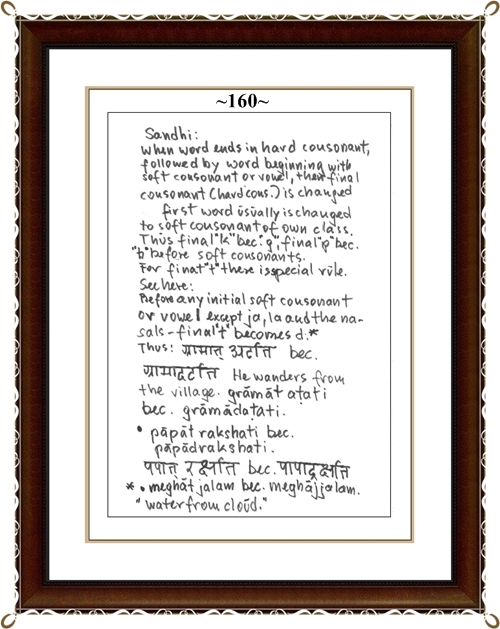 ~160~
Sandhi:
When word ends in hard consonant,
followed by word beginning with
soft consonant or vowel, then final
consonant (hard cons.) is changed
first word usually is changed
to soft consonant of own class.
Thus final "k" bec. "g", final "p" bec.
"b" before soft consonants.
For final "t" there is special rule.
See here:
Before any initial soft consonant
or vowel except ja, la and the na-
sals - final "t" becomes d.*
Thus: ग्रामात् अटति bec.
ग्रामादटति He wanders from
the village. grāmāt aṭati
bec. grāmādaṭati.
• pāpāt rakshati bec.
pāpādrakshati.
पापात् रक्षति bec. पापाद्रक्षति
* • meghāt jalam bec. meghājjalam.
"water from cloud."